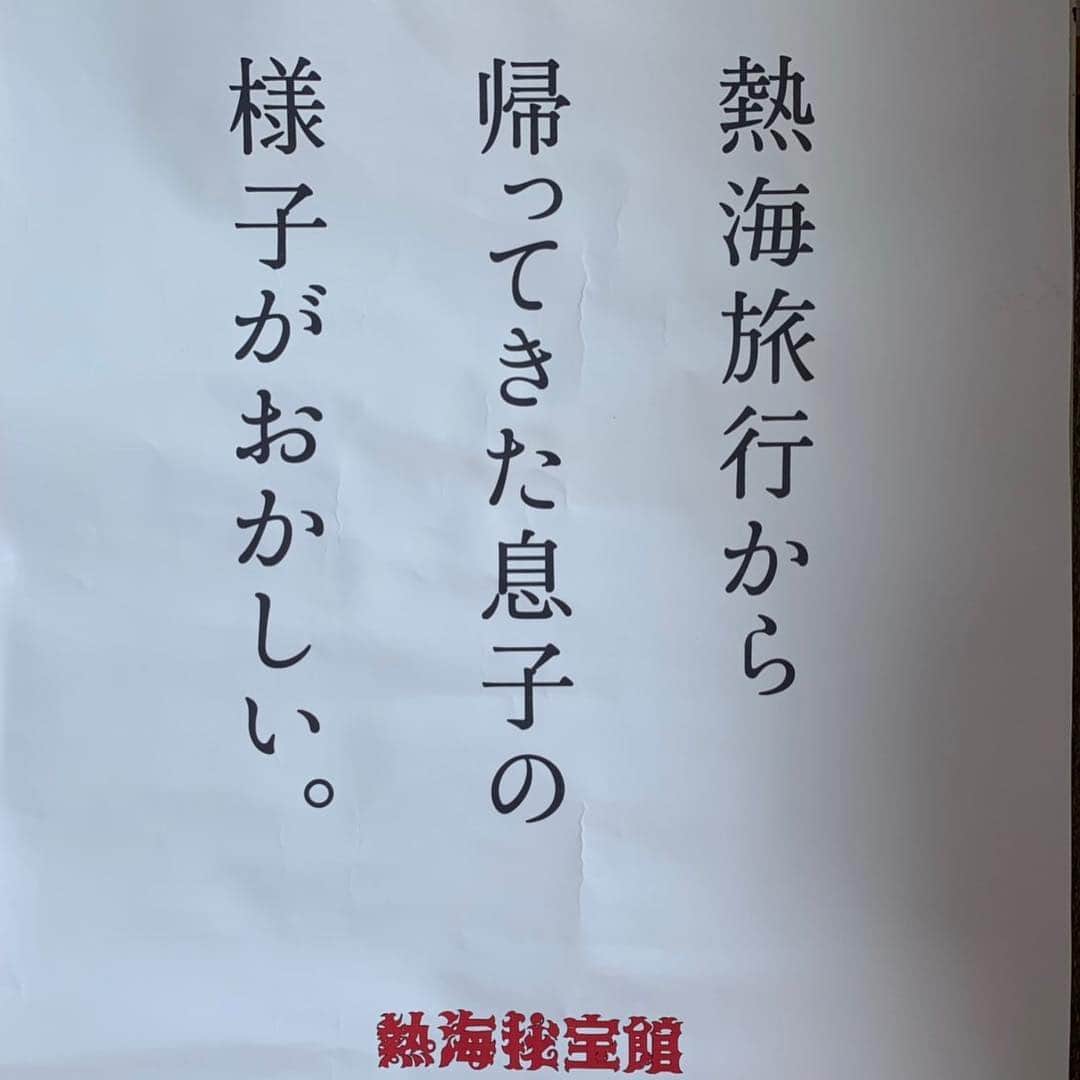 熱海旅行から
帰ってきた息子の
様子がおかしい。
熱海秘宝館